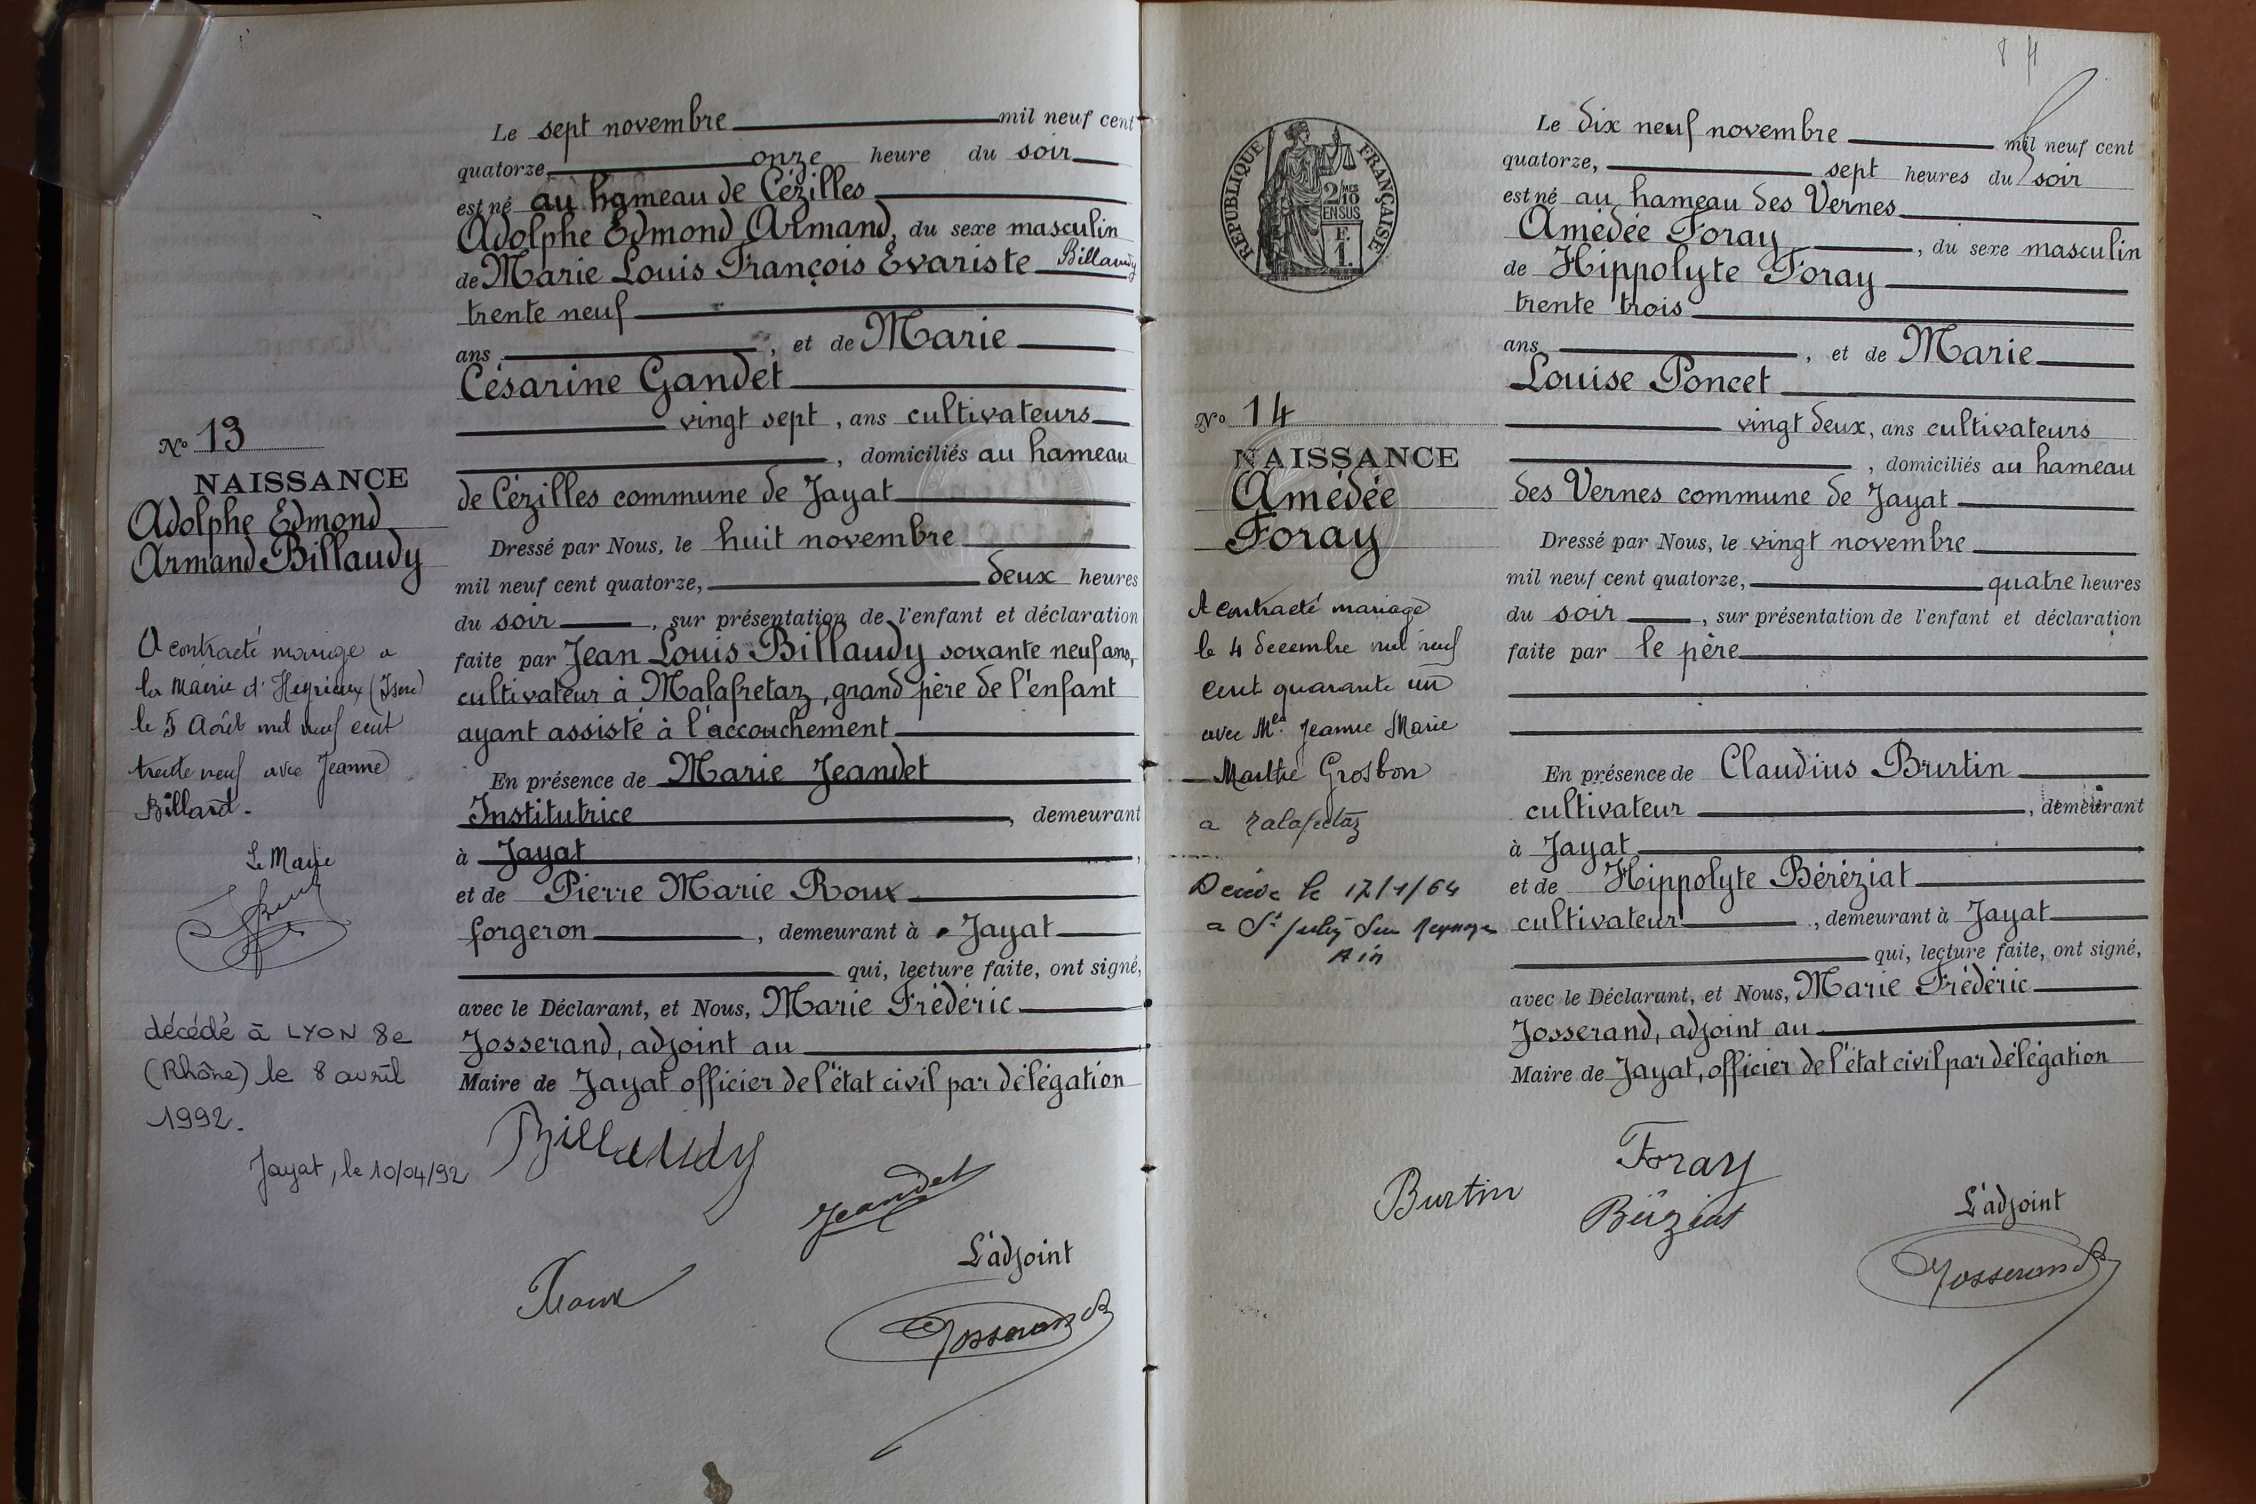 Le sept novembre mil neuf cent
quatorze, onze heure du soir
est né au hameau de Cézilles
Adolphe Edmond Armand, du sexe masculin
de Marie Louis François Evariste Billaudy
trente neuf
ans, et de Marie
Césarine Gandet
vingt sept, ans cultivateurs
, domiciliés au hameau
de Cézilles commune de Jayat
Dressé par Nous, le huit novembre
mil neuf cent quatorze, deux heures
du soir, sur présentation de l'enfant et déclaration
faite par Jean Louis Billaudy soixante neuf ans,
cultivateur à Malafretaz, grand père de l'enfant
ayant assisté à l'accouchement
En présence de Marie Jeandet
Institutrice, demeurant
à Jayat,
et de Pierre Marie Roux
forgeron, demeurant à Jayat
qui, lecture faite, ont signé,
avec le Déclarant, et Nous, Marie Frédéric
Josserand, adjoint au
Maire de Jayat officier de l'état civil par délégation
Billaudy
Jeandet
Roux
L'adjoint
Josserand
No 13
NAISSANCE
Adolphe Edmond
Armand Billaudy
A contracté mariage a
la Mairie d'Heyrieux (Isere)
le 5 Août mil neuf cent
trente neuf avec Jeanne
Billard.
Le Maire
décédé à LYON 8e
(Rhône) le 8 avril
1992.
Jayat, le 10/04/92
84
RÉPUBLIQUE FRANÇAISE
2/10
MES
EN SUS
F.
1.
No 14
NAISSANCE
Amédée
Foray
A contracté mariage
le 4 decembre mil neuf
cent quarante un
avec Jeanne Marie
Marthe Grosbon
a
Décédé le 17/1/64
a St Julien Sur Reyssouze
Ain
Le dix neuf novembre mil neuf cent
quatorze, sept heures du soir
est né au hameau des Vernes
Amédée Foray, du sexe masculin
de Hippolyte Foray
trente trois
ans, et de Marie
Louise Poncet
vingt deux, ans cultivateurs
, domiciliés au hameau
des Vernes commune de Jayat
Dressé par Nous, le vingt novembre
mil neuf cent quatorze, quatre heures
du soir, sur présentation de l'enfant et déclaration
faite par le père
En présence de Claudius Burtin
cultivateur, demeurant
à Jayat
et de Hippolyte Béréziat
cultivateur, demeurant à Jayat
qui, lecture faite, ont signé,
avec le Déclarant, et Nous, Marie Frédéric
Josserand, adjoint au
Maire de Jayat, officier de l'état civil par délégation
Foray
Burtin
Béréziat
L'adjoint
Josserand